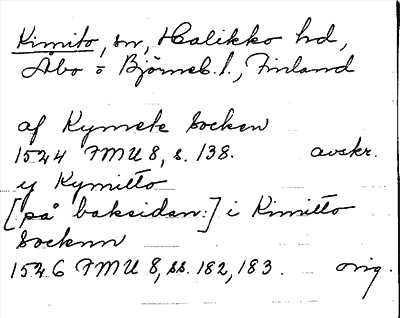 Kimito, sn, Halikko hd,
Åbo o Björneb. l., Finland
af Kymete Socken
1524 FMU 8, s. 138. avskr.
y Kymitto
[på baksidan:] i Kimitto
Socknn
1526 FMU 8, ss. 182, 183. orig.